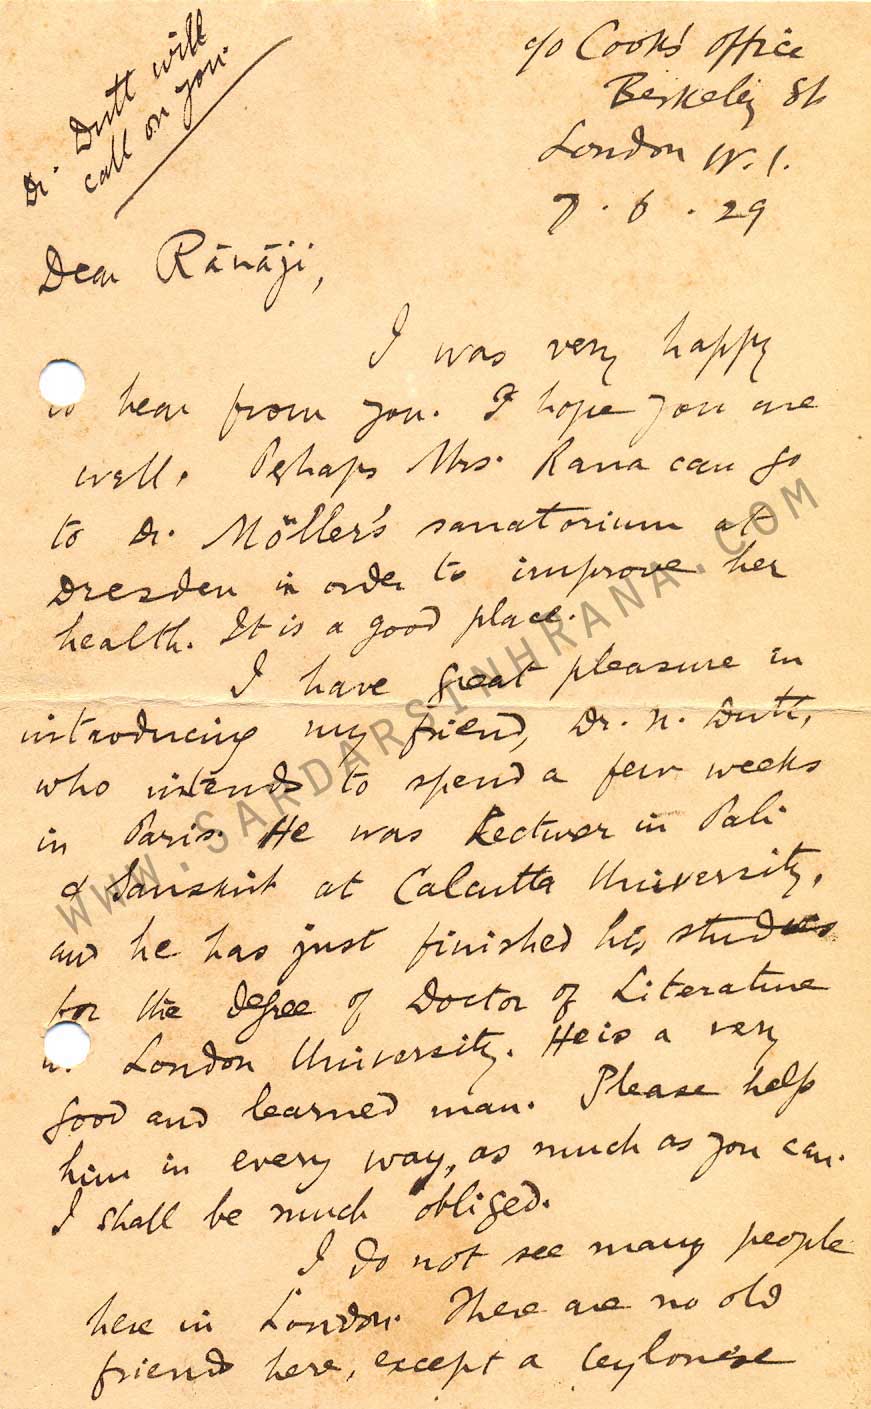 Dr. Dutt will
call on you.
c/o Cook's office
Berkeley St
London W.1.
7.6.29
Dear Rānāji,
I was very happy
to hear from you. I hope you are
well. Perhaps Mrs. Rana can go
to Dr. Möller's sanatorium at
Dresden in order to improve her
health. It is a good place.
I have great pleasure in
introducing my friend, Dr. N. Dutt,
who intends to spend a few weeks
in Paris. He was Lecturer in Pali
& Sanskrit at Calcutta University,
and he has just finished his studies
for the degree of Doctor of Literature
London University. He is a very
good and learned man. Please help
him in every way, as much as you can.
I shall be much obliged.
I do not see many people
here in London. There are no old
friends here, except a Ceylonese
WWW.SARDARSINHRANA.COM